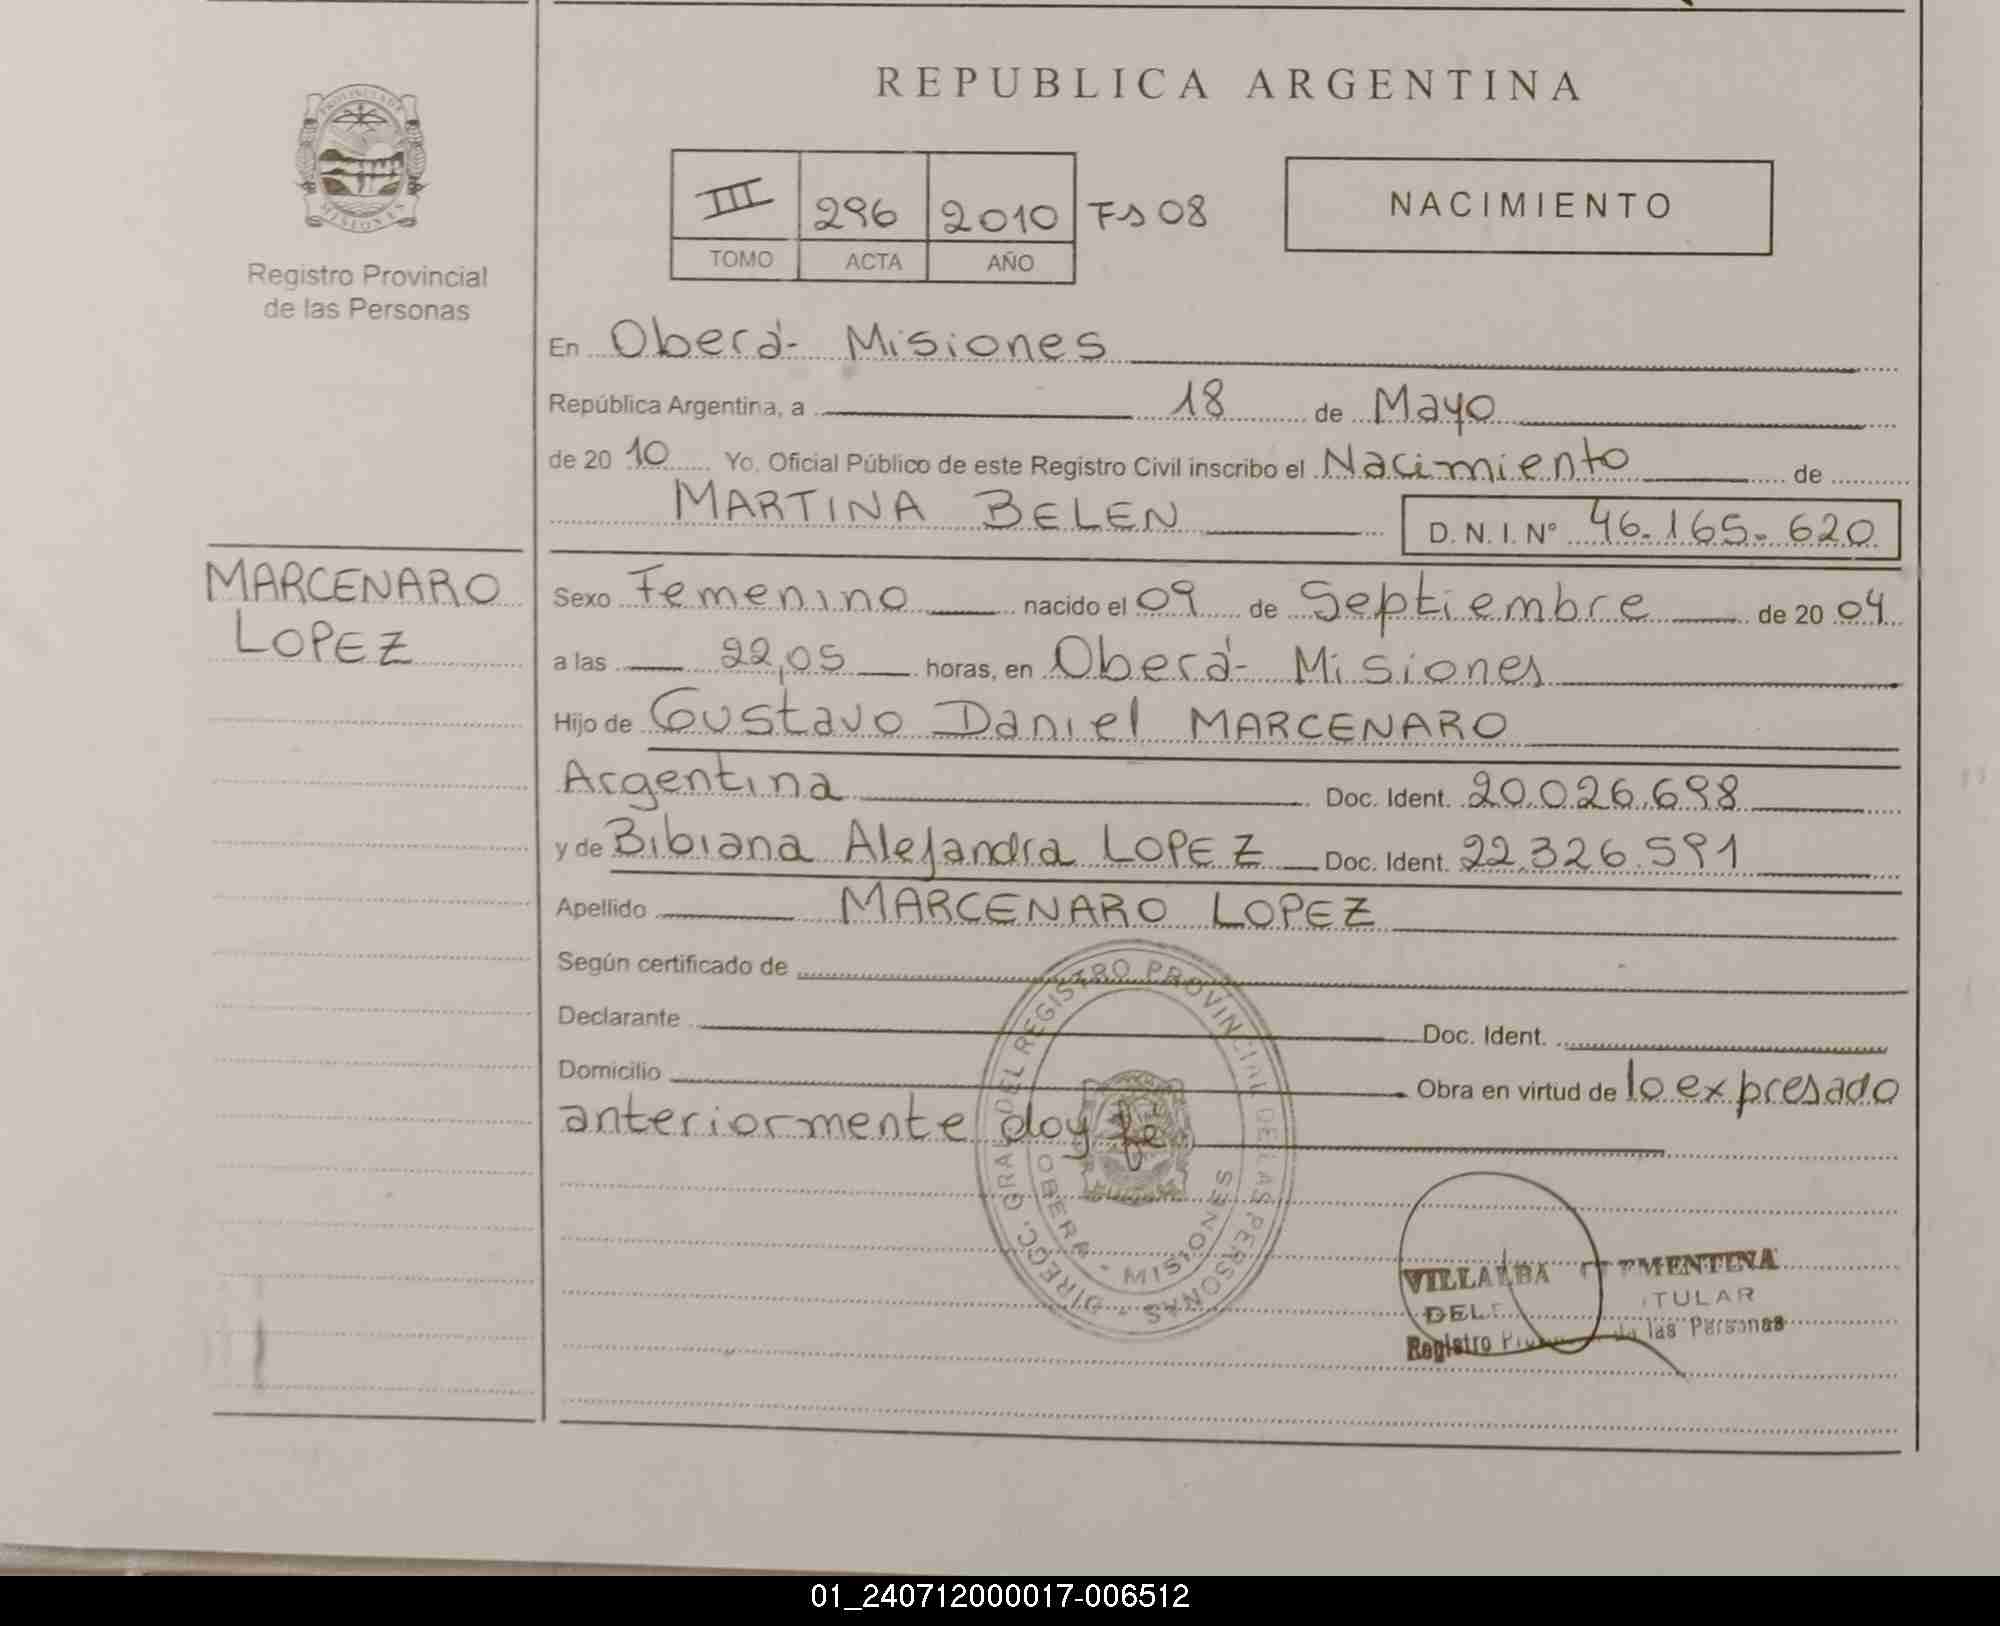 REPUBLICA ARGENTINA
PROVINCIA DE
MISIONES
Registro Provincial
de las Personas
III 296 2010 Fs 08
TOMO ACTA AÑO
NACIMIENTO
En Oberá- Misiones
República Argentina, a 18 de Mayo
de 20 10 Yo, Oficial Público de este Registro Civil inscribo el Nacimiento de
MARTINA BELEN D. N. I. Nº 46.165.620
MARCENARO
LOPEZ
Sexo Femenino nacido el 09 de Septiembre de 20 04
a las 22,05 horas, en Oberá- Misiones
Hijo de Gustavo Daniel MARCENARO
Argentina Doc. Ident. 20.026.698
y de Bibiana Alejandra LOPEZ Doc. Ident. 22.326.591
Apellido MARCENARO LOPEZ
Según certificado de
Declarante Doc. Ident.
Domicilio Obra en virtud de lo expresado
anteriormente doy fe
DIRECC. GRAL. DEL REGISTRO PROVINCIAL DE LAS PERSONAS
OBERA - MISIONES
VILLALBA
TULAR
Registro de las Personas
01_240712000017-006512